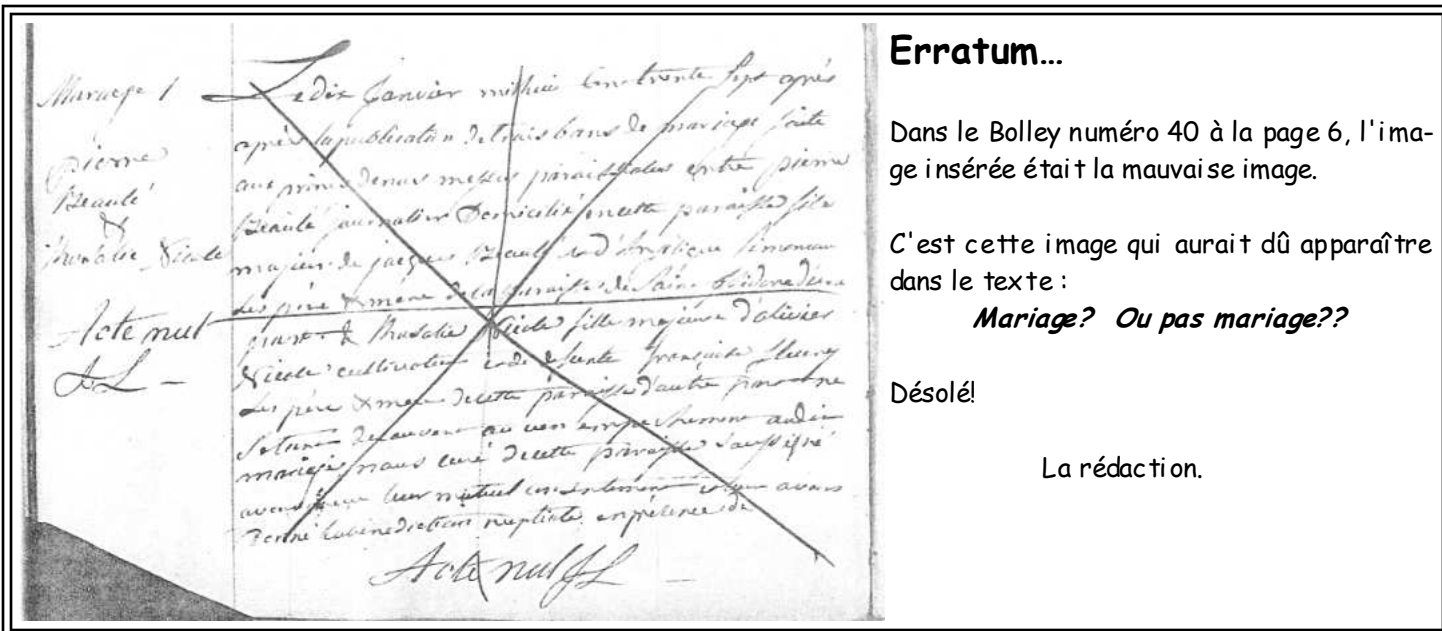 Mariage 1
pierre
Beaulé
&
Rosalie Nicole
Acte nul
AL
Le dix Janvier mil huit Cent trente Sept après
après la publication de trois bans de mariage faite
aux prônes de nos messes paroissiales entre pierre
Beaulé journalier Domicilié en cette paroisse fils
majeur de jacques Beaulé et d'Angelique Simoneau
Les père & mère de la paroisse de Saint isidore d'une
part & Rosalie Nicole fille majeure d'olivier
Nicole cultivateur et de défunte françoise fleury
Les père & mère de cette paroisse d'autre part ne
S'étant découvert aucun empêchement audit
mariage nous curé de cette paroisse Soussigné
avons reçu leur mutuel consentement et leur avons
Donné la bénédiction nuptiale en présence de
Acte nul
Erratum...
Dans le Bolley numéro 40 à la page 6, l'ima-
ge insérée était la mauvaise image.
C'est cette image qui aurait dû apparaître
dans le texte :
Mariage? Ou pas mariage??
Désolé!
La rédaction.